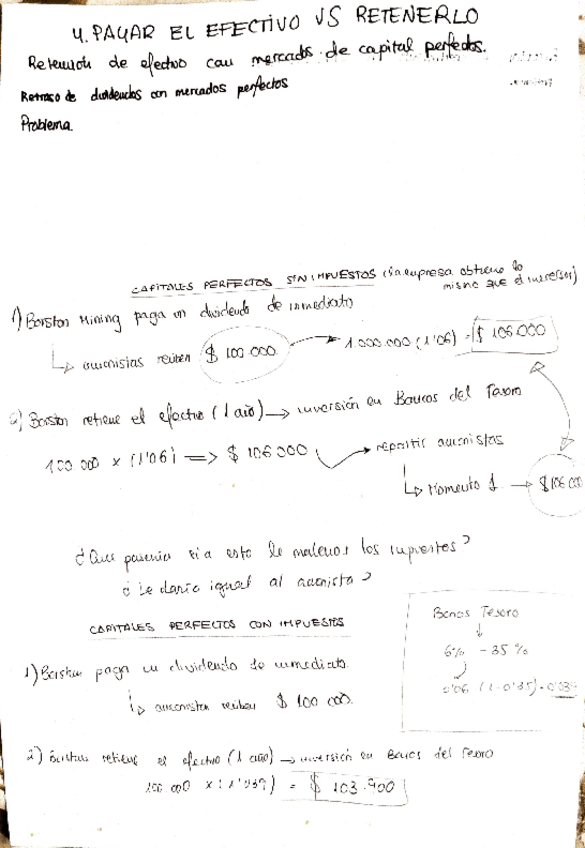 4. PAGAR EL EFECTIVO VS RETENERLO
Retención de efectivo con mercados de capital perfectos.
Retraso de dividendos con mercados perfectos
Problema.
CAPITALES PERFECTOS SIN IMPUESTOS (la empresa obtiene lo
mismo que el inversor)
1) Barston Mining paga un dividendo de inmediato
↳ accionistas reciben $ 100.000. → 1 000.000 (1'06) = $ 106.000
2) Barston retiene el efectivo (1 año) → inversión en Bonos del Tesoro
100 000 x (1'06) => $ 106 000 → repartir accionistas
↳ Momento 1 → $106 000
¿Que pasaría si a esto le metemos los impuestos?
¿Le daría igual al accionista?
CAPITALES PERFECTOS CON IMPUESTOS
Bonos Tesoro
6% - 35 %
0'06 (1-0'35) = 0'039
1) Barston paga un dividendo de inmediato.
↳ accionistas reciben $ 100 000.
2) Barston retiene el efectivo (1 año) → inversión en Bonos del Tesoro
100 000 x (1'039) = $ 103.900